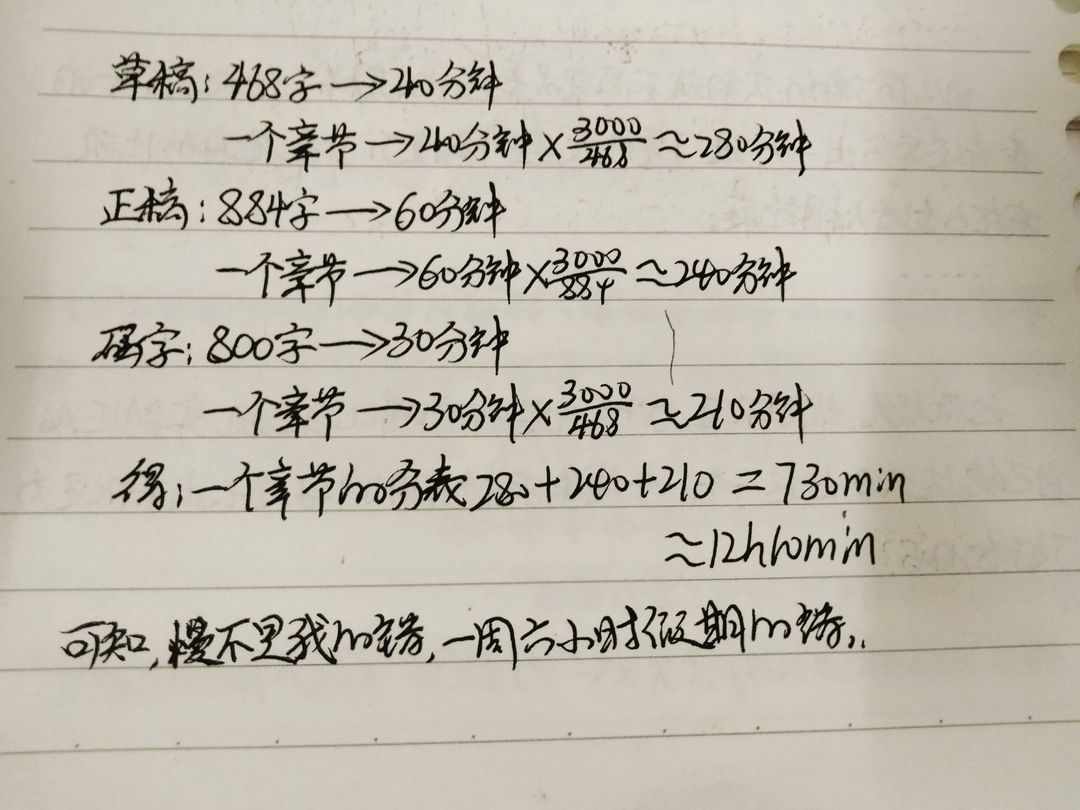 草稿：468字→40分钟
一个章节→40分钟×3000/468≈280分钟
正稿：884字→60分钟
一个章节→60分钟×3000/884≈240分钟
码字：800字→30分钟
一个章节→30分钟×3000/468≈210分钟
得：一个章节的劳裁280+240+210=730min
≈12h10min
可知，慢不是我的错，一周六小时假期的错..